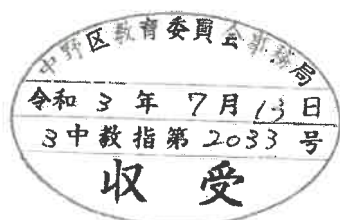 中野区教育委員会事務局
令和3年7月13日
3中教指第2033号
収受